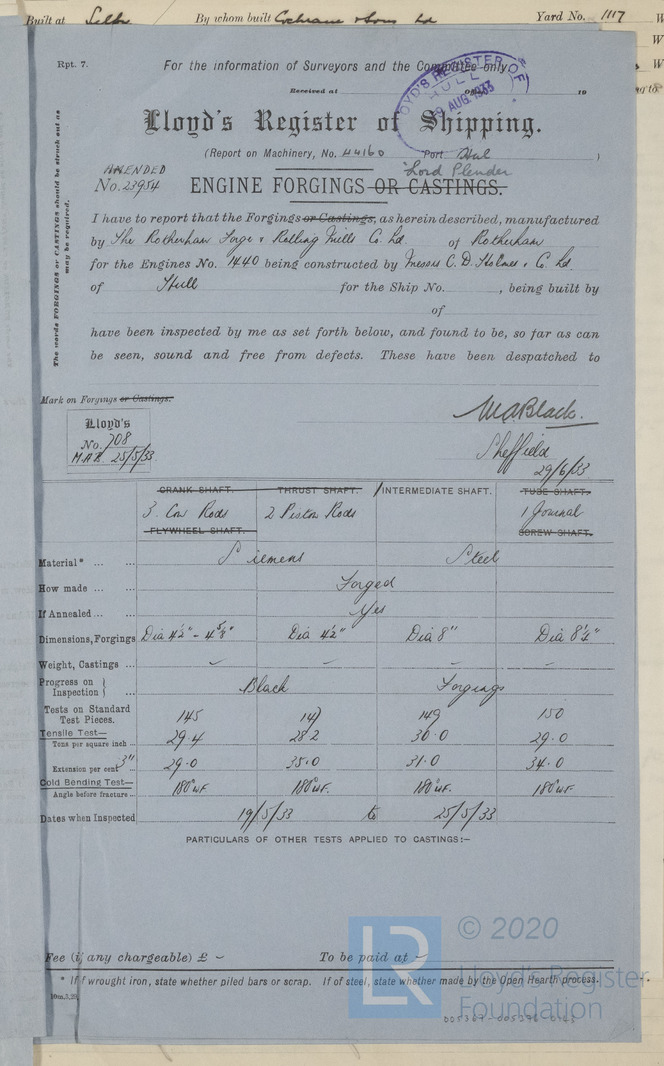 Built at Selby By whom built Cochrane & Sons Ld Yard No. 1117
Rpt. 7.
For the information of Surveyors and the Committee only
Received at 19
LLOYD'S REGISTER OF
HULL
9 AUG. 1933
Lloyd's Register of Shipping.
(Report on Machinery, No. 44160 Port Hull )
"Lord Plender
AMENDED
No. 23954 ENGINE FORGINGS OR CASTINGS.
The words FORGINGS or CASTINGS should be struck out as
may be required.
I have to report that the Forgings or Castings, as herein described, manufactured
by The Rotherham Forge & Rolling Mills Co. Ld. of Rotherham
for the Engines No. 1440 being constructed by Messrs C. D. Holmes & Co. Ld
of Hull for the Ship No. , being built by
of
have been inspected by me as set forth below, and found to be, so far as can
be seen, sound and free from defects. These have been despatched to
Mark on Forgings or Castings.
Lloyd's
No. 708
M.A.B. 25/5/33
M.A. Black.
Sheffield
29/6/33
CRANK SHAFT. THRUST SHAFT. 1 INTERMEDIATE SHAFT. TUBE SHAFT.
3 Con Rods 2 Piston Rods 1 Journal
FLYWHEEL SHAFT. SCREW SHAFT.
Material* ... ... Siemens Steel
How made ... ... Forged
If Annealed ... ... Yes
Dimensions, Forgings Dia 4½" - 4⅝" Dia 4½" Dia 8" Dia 8¼"
Weight, Castings ... – – – –
Progress on
Inspection } ... Black Forgings
Tests on Standard
Test Pieces. 145 147 149 150
Tensile Test—
Tons per square inch ... 29.4 28.2 30.0 29.0
Extension per cent 3" 29.0 35.0 31.0 34.0
Cold Bending Test—
Angle before fracture ... 180° UF. 180° UF. 180° UF. 180° UF
Dates when Inspected 19/5/33 to 25/5/33
PARTICULARS OF OTHER TESTS APPLIED TO CASTINGS:–
Fee (if any chargeable) £ – To be paid at –
* If wrought iron, state whether piled bars or scrap. If of steel, state whether made by the Open Hearth process.
LR
© 2020
Lloyd's Register
Foundation